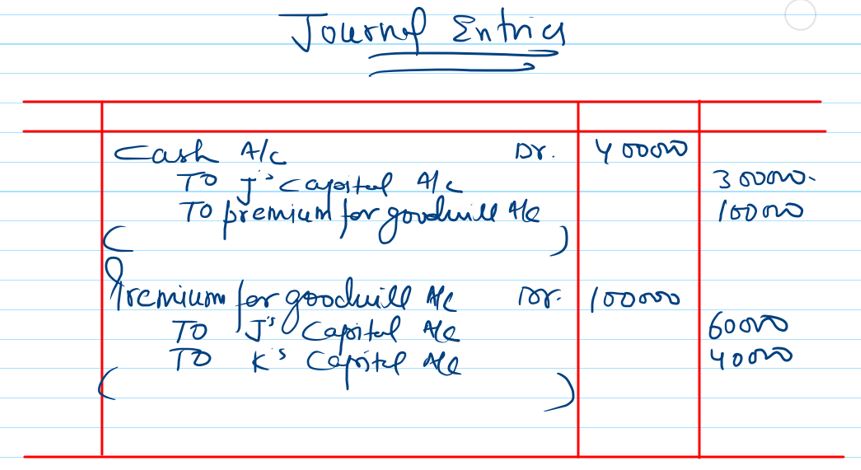 Journal Entries
Cash A/c Dr. 400000
To J's Capital A/c 300000.
To premium for goodwill A/c 100000
( )
Premium for goodwill A/c Dr. 100000
To J's Capital A/c 60000
To K's Capital A/c 40000
( )